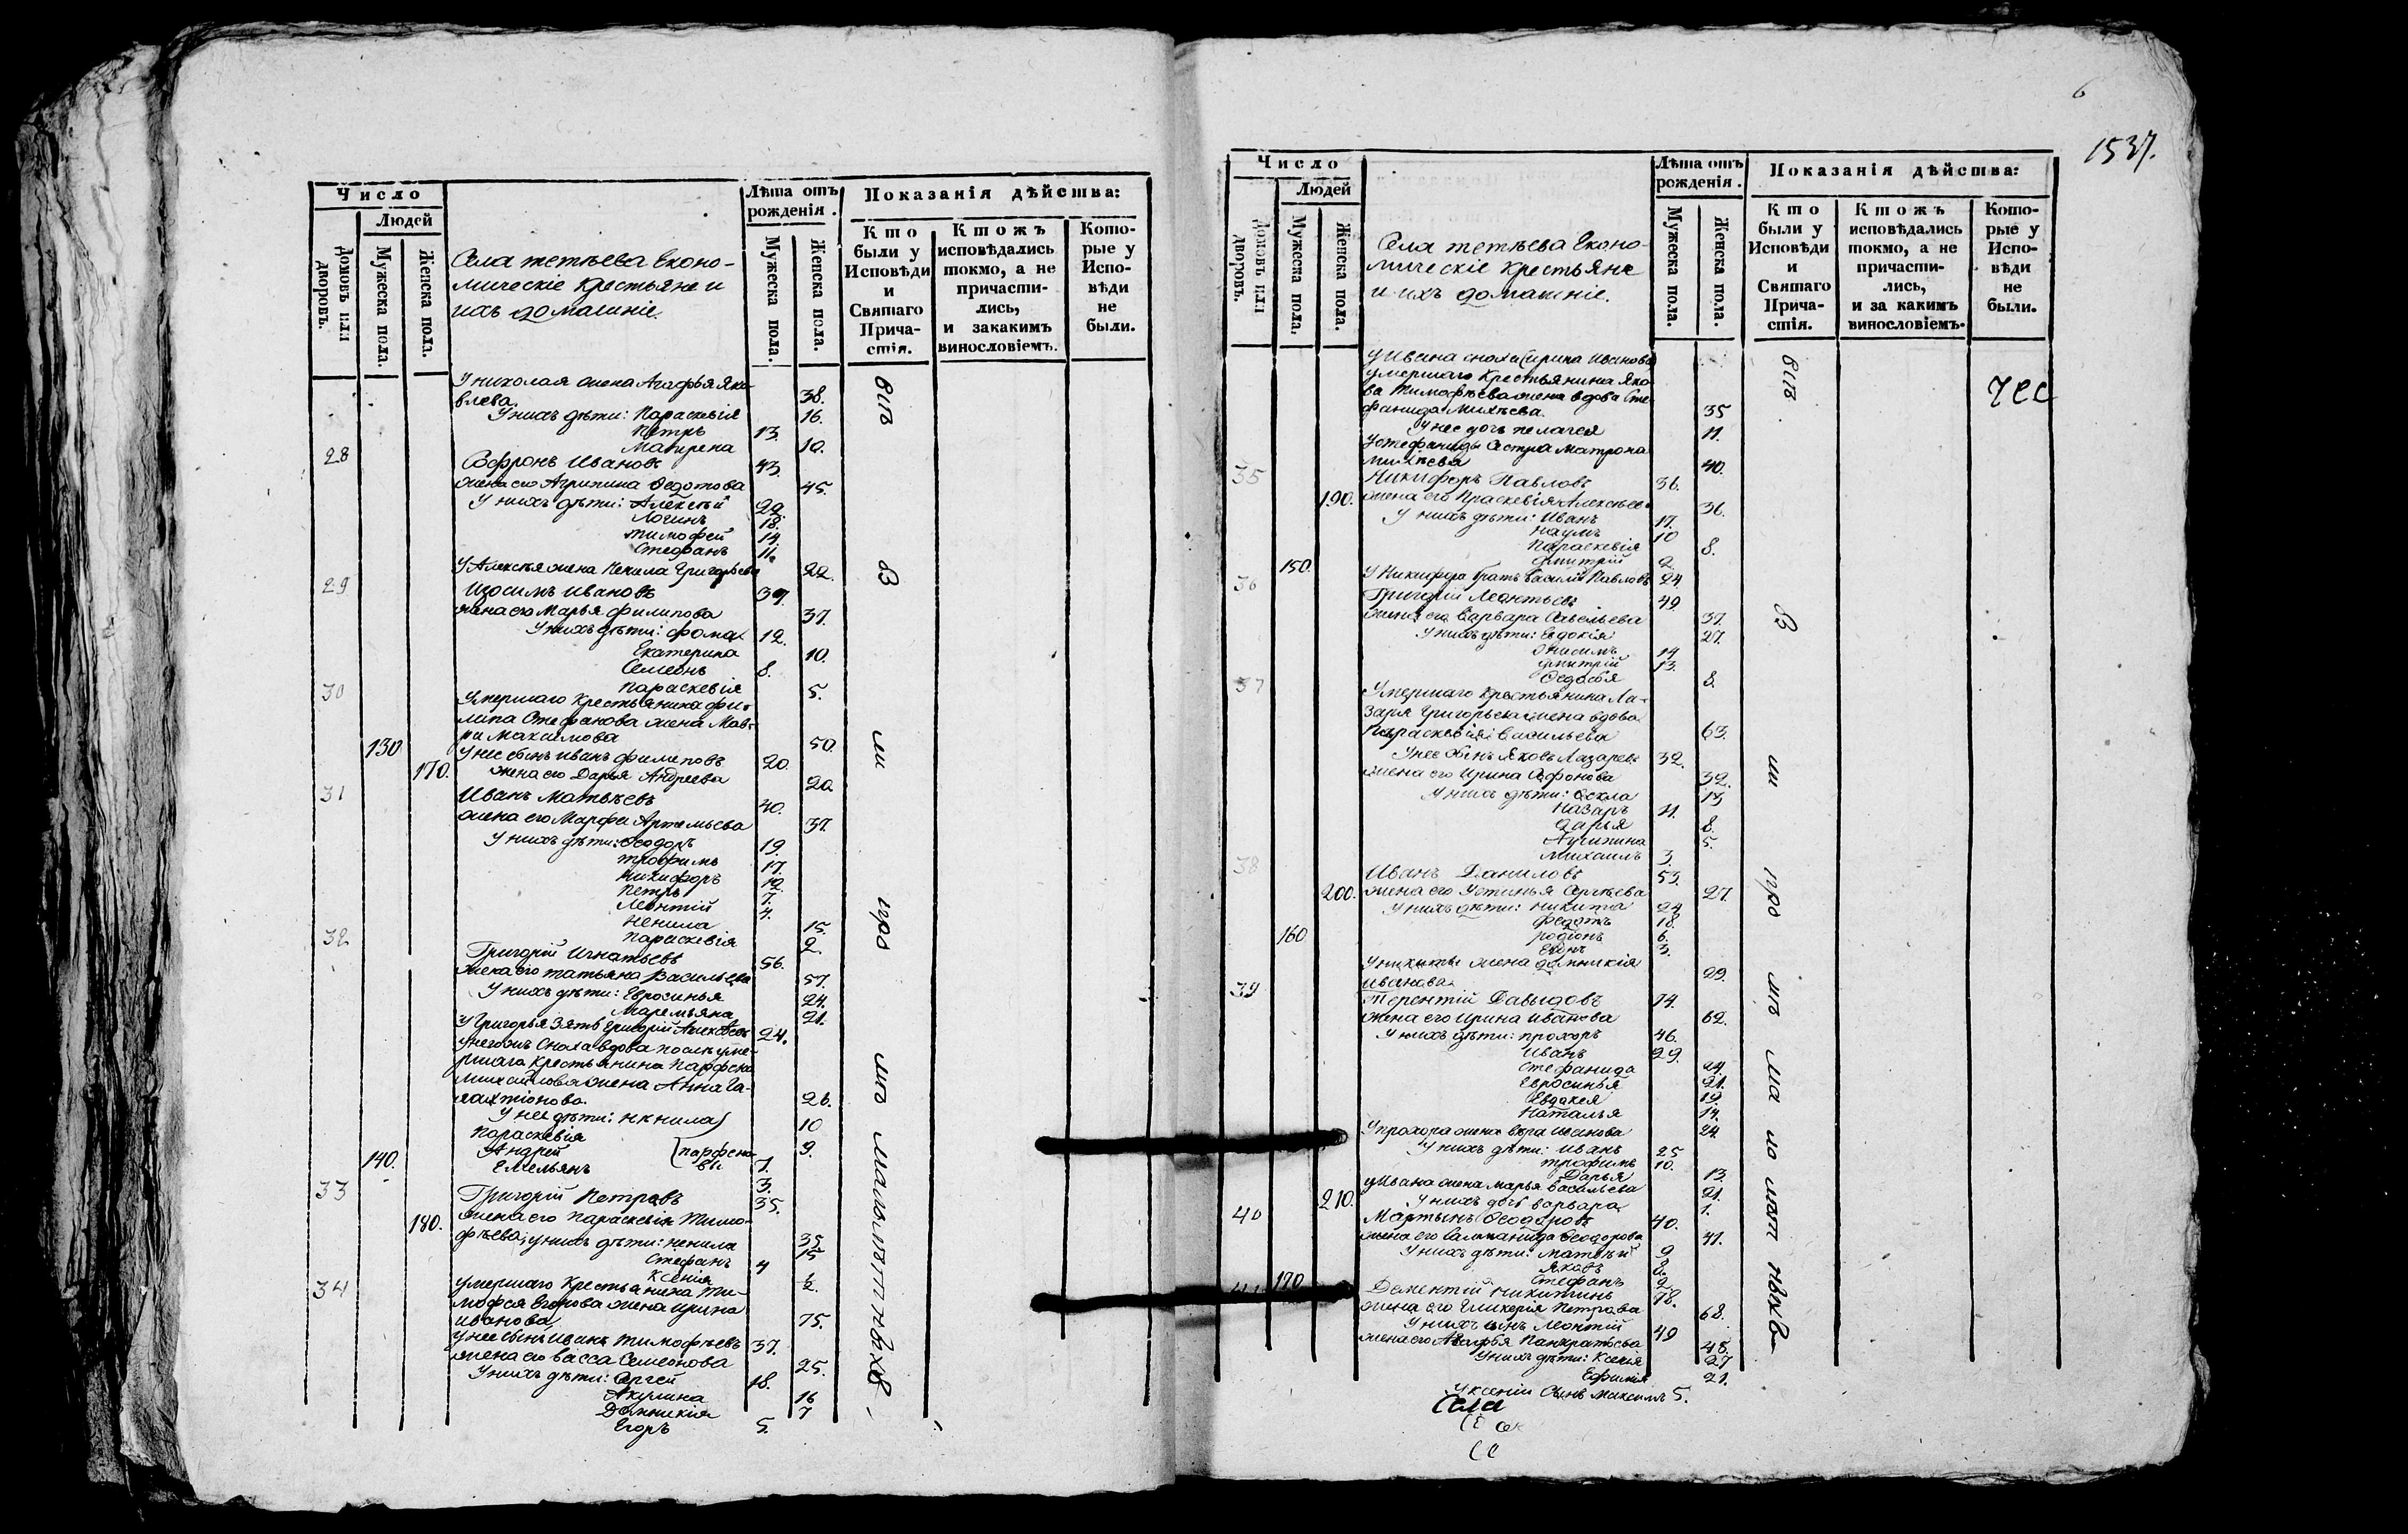 Число
Людей
Домовъ или дворовъ.
Мужеска пола.
Женска пола.
Села тетѣева Еконо-
мическіе крестьяне и
ихъ домашніе.
Лѣта отъ рожденія.
Мужеска пола.
Женска пола.
Показанія дѣйства:
Кто были у Исповѣди и Святаго Прича-стія.
Ктожъ исповѣдались токмо, а не причасти-лись, и закакимъ винословіемъ.
Кото-рые у Испо-вѣди не были.
У николая жена Агафья Яко-
влева 38.
У нихъ дѣти: Параскевія 16.
Петръ 13.
Матрена 10.
28 Софронъ Ивановъ 43.
жена его Агрипина Федотова 45.
У нихъ дѣти: Алексѣй 22.
Логинъ 18.
тимофей 14
Стефанъ 11.
У Алексѣя жена Ненила Григорьева 22.
29 Изосимъ Ивановъ 39.
жена его Марья филипова 37.
У нихъ дѣти: фома 12.
Екатерина 10.
Семенъ 8.
Параскевія 5.
30 Умершаго Крестьянина фи-
липа Стефанова жена Мав-
ра Максимова 50.
130 У нее сынъ иванъ филиповъ 20.
170. жена его Дарья Андреева 20
31 Иванъ Матвѣевъ 40.
жена его Марфа Артемьева 37.
У нихъ дѣти: Феодоръ 19.
трофимъ 17.
Никифоръ 12.
Петръ 7.
Леонтій 4.
Ненила 15.
Параскевія 2.
32 Григорій Игнатьевъ 56.
жена его татьяна Васильева 57.
У нихъ дѣти: Евросинья 24.
Маремьяна 21.
У Григорья зять Григорій Алексѣевъ 24.
У негожъ Сноха вдова послѣ уме-
ршаго крестьянина Парфена
Михайлова жена Анна Га-
лактіонова 26.
У нее дѣти: ненила 10
Параскевія 9.
Андрей парфено- 7.
140. Емельянъ вы 3.
33 Григорій Петровъ 35.
180. жена его Параскевія Тимо-
фѣева 35
у нихъ дѣти: ненила 15
Стефанъ 4
Ксенія
34 умершаго Крестьянина Ти-
мофея Егорова жена ирина
иванова 75.
У нее сынъ Иванъ Тимофѣевъ 37.
жена его васса Семенова 25.
У нихъ дѣти: Сергей 18.
Акулина 16
Домникія 7
Егоръ 5.
6
1537.
Число
Людей
Домовъ или дворовъ.
Мужеска пола.
Женска пола.
Села тетѣева Еконо-
мическіе крестьяне
и ихъ домашніе.
Лѣта отъ рожденія.
Мужеска пола.
Женска пола.
Показанія дѣйства:
Кто были у Исповѣди и Святаго Прича-стія.
Ктожъ исповѣдались токмо, а не причасти-лись, и за какимъ винословіемъ.
Кото-рые у Испо-вѣди не были.
У Ивана сноха ирина Иванова
умершаго Крестьянина Яко-
ва Тимофѣева жена вдова Сте-
фанида Михѣева 35
У нее дочь пелагея 11.
У стефаниды Сестра матрона
михѣева 40.
35 Никифоръ Павловъ 36.
190. жена его Праскевія Алексѣева 36.
У нихъ дѣти: Иванъ 17.
Наумъ 10
Параскевія 8.
150. Дмитрій 2.
У Никифора братъ Василій Павловъ 24
36 Григорій Леонтьевъ 49
жена его Варвара Савельева 37.
У нихъ дѣти: Евдокія 27.
Онисимъ 14
Дмитрій 13.
Федосья 8.
37 Умершаго крестьянина Ла-
заря Григорьева жена вдова
Параскевія Васильева 63.
У нее сынъ Яковъ Лазаревъ 32.
жена его Ирина Афонова 32.
У нихъ дѣти: Фекла 13
Назаръ 11.
Дарья 8.
Агрипина 5.
Михаилъ 3.
38 Иванъ Даниловъ 53.
200. жена его Устинья Сергѣева 27.
У нихъ дѣти: никита 24
федотъ 18.
160 родіонъ 6.
3.
У никиты жена домникія
иванова 29.
39 Терентій Давыдовъ 74.
жена его Ирина иванова 62.
У нихъ дѣти: прохоръ 46.
Иванъ 29.
Стефанида 24
Евросинья 21.
Евдокея 19
Наталья 14.
У прохора жена вѣра иванова 24.
У нихъ дѣти: иванъ 25
трофимъ 10.
Дарья 13.
У Ивана жена марья Васильева 21.
210. У нихъ дочь варвара 1.
40 Мартынъ Феодоровъ 40.
жена его Саламанида Феодорова 41.
У нихъ дѣти: матвѣй 9
Яковъ 8.
170 Стефанъ 2
41 Дементій никитинъ 78.
жена его Гликерія Петрова 68.
У нихъ сынъ Леонтій 49
жена его Агафья Панкратьева 48.
У нихъ дѣти: Ксенія 27
Ефимія 21.
У ксеніи Сынъ Максимъ 5.
Села